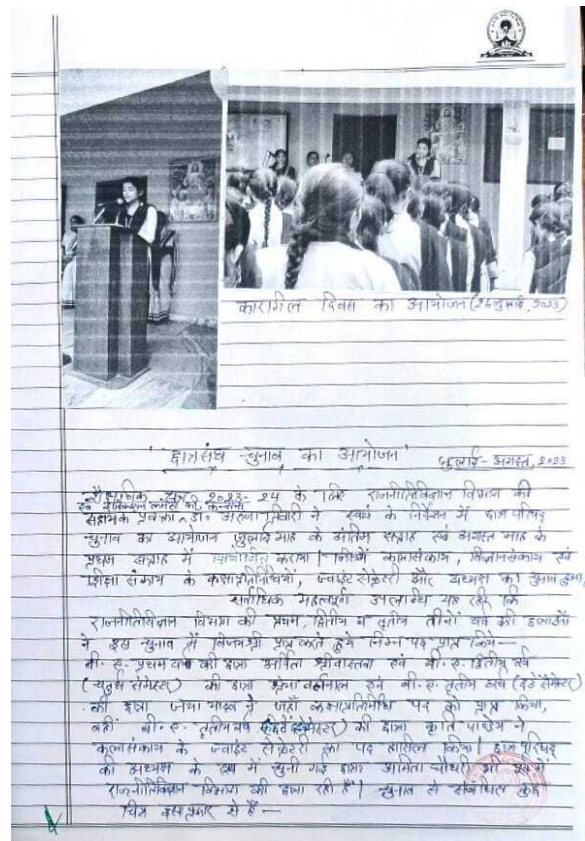 कारागिल दिवस का आयोजन (26 जुलाई, 2023)
'छात्रसंघ चुनाव का आयोजन'
जुलाई - अगस्त, 2023
शैक्षणिक सत्र 2023-24 के लिए राजनीतिविज्ञान विभाग की
सहायक प्रवक्ता डॉ० ने स्वयं के निर्देशन में छात्रा परिषद्
चुनाव का आयोजन जुलाई माह के अंतिम सप्ताह एवं अगस्त माह के
प्रथम सप्ताह में कराया। जिसमें कलासंकाय, विज्ञानसंकाय एवं
शिक्षा संकाय के कक्षाप्रतिनिधियों, ज्वाइंट सेक्रेटरी और अध्यक्ष का चुनाव हुआ,
सर्वाधिक महत्वपूर्ण उपलब्धि यह रही कि
राजनीतिविज्ञान विभाग की प्रथम, द्वितीय व तृतीय तीनों वर्ष की छात्राओं
ने इस चुनाव में विजयश्री प्राप्त करते हुये निम्न पद प्राप्त किये—
बी.ए. प्रथम वर्ष की छात्रा अर्पिता श्रीवास्तवा एवं बी.ए. द्वितीय वर्ष
(चतुर्थ सेमेस्टर) की छात्रा एवं बी.ए. तृतीय वर्ष
की छात्रा जया यादव ने जहाँ कक्षाप्रतिनिधि पद को प्राप्त किया,
वहीं बी.ए. तृतीय वर्ष की छात्रा कृति पाण्डेय ने
कलासंकाय के ज्वाइंट सेक्रेटरी का पद हासिल किया। छात्रा परिषद्
की अध्यक्ष के रूप में चुनी गई छात्रा अमिता चौधरी भी
राजनीतिविज्ञान विभाग की छात्रा रही हैं। चुनाव से संबंधित कुछ
चित्र इस प्रकार से हैं —